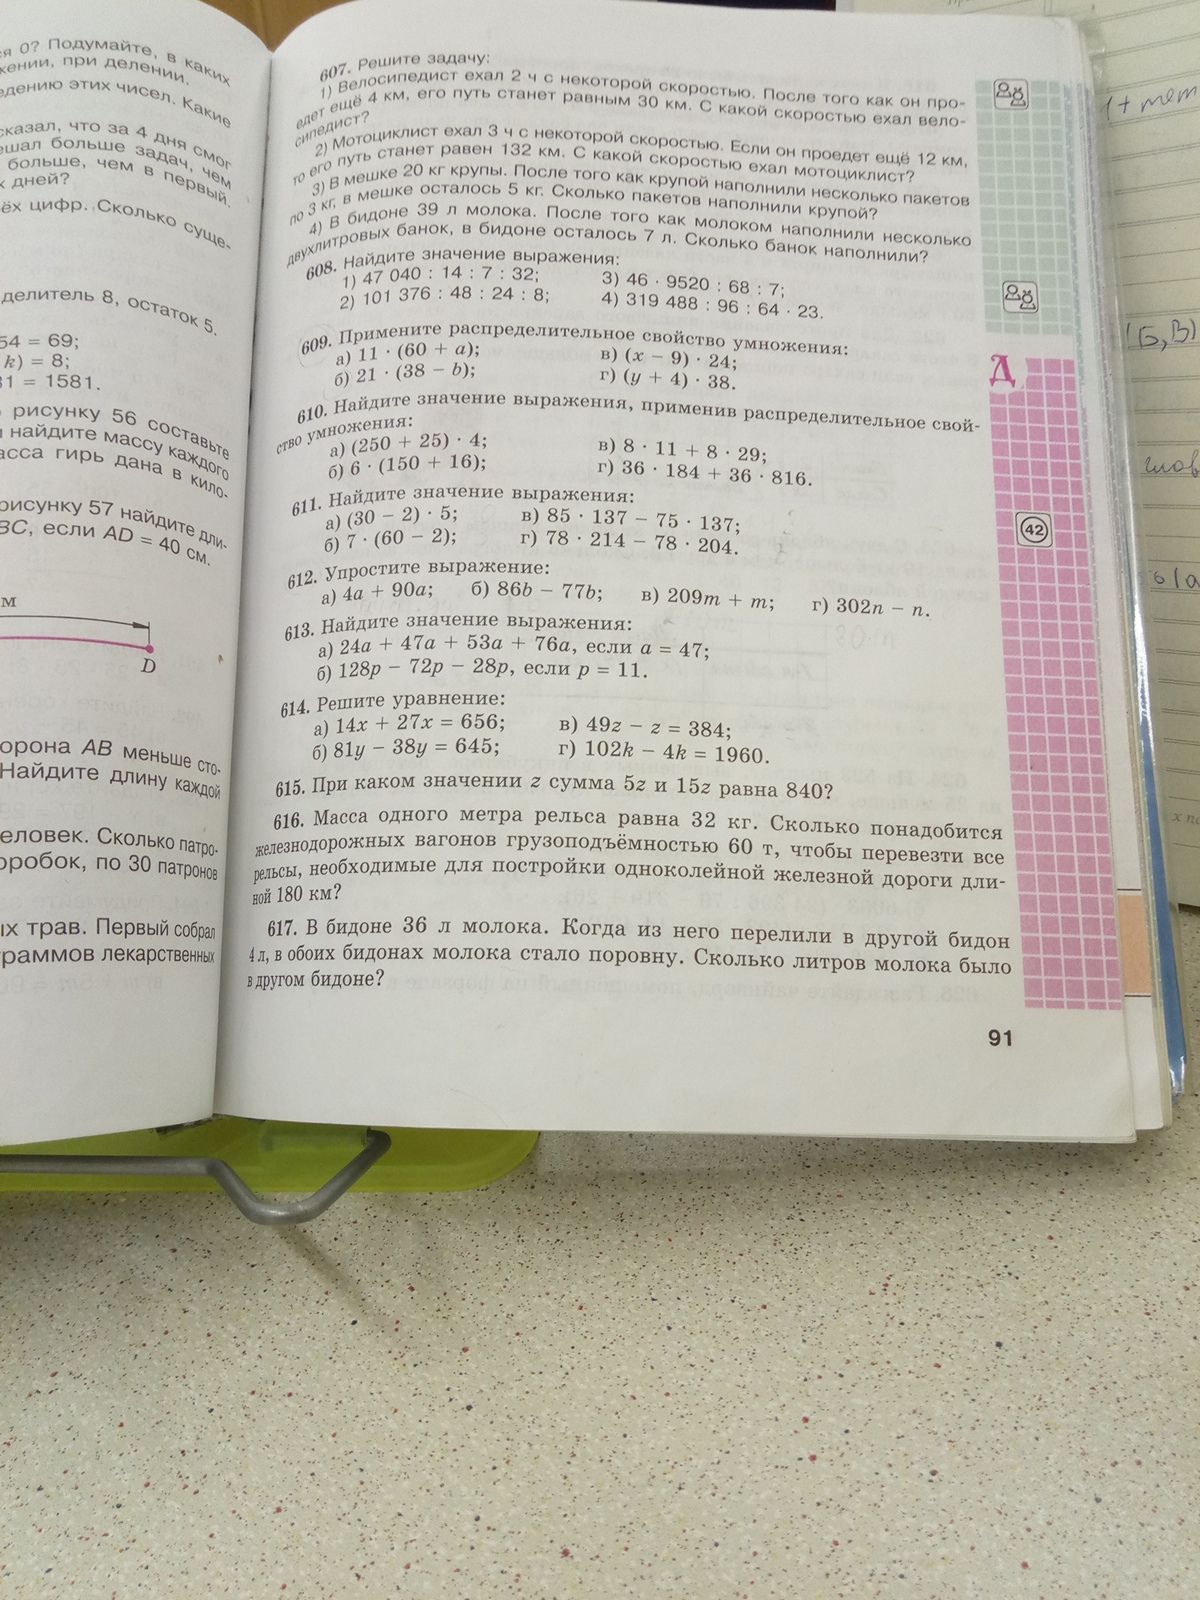 ся 0? Подумайте, в каких
жении, при делении.
едению этих чисел. Какие
сказал, что за 4 дня смог
ешал больше задач, чем
больше, чем в первый.
х дней?
ёх цифр. Сколько суще-
делитель 8, остаток 5.
54 = 69;
k) = 8;
31 = 1581.
рисунку 56 составьте
и найдите массу каждого
асса гирь дана в кило-
рисунку 57 найдите дли-
BC, если AD = 40 см.
м
D
орона AB меньше сто-
Найдите длину каждой
еловек. Сколько патро-
оробок, по 30 патронов
ых трав. Первый собрал
граммов лекарственных
607. Решите задачу:
1) Велосипедист ехал 2 ч с некоторой скоростью. После того как он про-
едет ещё 4 км, его путь станет равным 30 км. С какой скоростью ехал вело-
сипедист?
2) Мотоциклист ехал 3 ч с некоторой скоростью. Если он проедет ещё 12 км,
то его путь станет равен 132 км. С какой скоростью ехал мотоциклист?
3) В мешке 20 кг крупы. После того как крупой наполнили несколько пакетов
по 3 кг, в мешке осталось 5 кг. Сколько пакетов наполнили крупой?
4) В бидоне 39 л молока. После того как молоком наполнили несколько
двухлитровых банок, в бидоне осталось 7 л. Сколько банок наполнили?
608. Найдите значение выражения:
1) 47 040 : 14 : 7 : 32; 3) 46 · 9520 : 68 : 7;
2) 101 376 : 48 : 24 : 8; 4) 319 488 : 96 : 64 · 23.
609. Примените распределительное свойство умножения:
а) 11 · (60 + a); в) (x − 9) · 24;
б) 21 · (38 − b); г) (y + 4) · 38.
Д
610. Найдите значение выражения, применив распределительное свой-
ство умножения:
а) (250 + 25) · 4; в) 8 · 11 + 8 · 29;
б) 6 · (150 + 16); г) 36 · 184 + 36 · 816.
611. Найдите значение выражения:
а) (30 − 2) · 5; в) 85 · 137 − 75 · 137;
б) 7 · (60 − 2); г) 78 · 214 − 78 · 204.
42
612. Упростите выражение:
а) 4a + 90a; б) 86b − 77b; в) 209m + m; г) 302n − n.
613. Найдите значение выражения:
а) 24a + 47a + 53a + 76a, если a = 47;
б) 128p − 72p − 28p, если p = 11.
614. Решите уравнение:
а) 14x + 27x = 656; в) 49z − z = 384;
б) 81y − 38y = 645; г) 102k − 4k = 1960.
615. При каком значении z сумма 5z и 15z равна 840?
616. Масса одного метра рельса равна 32 кг. Сколько понадобится
железнодорожных вагонов грузоподъёмностью 60 т, чтобы перевезти все
рельсы, необходимые для постройки одноколейной железной дороги дли-
ной 180 км?
617. В бидоне 36 л молока. Когда из него перелили в другой бидон
4 л, в обоих бидонах молока стало поровну. Сколько литров молока было
в другом бидоне?
91
(Б, В)